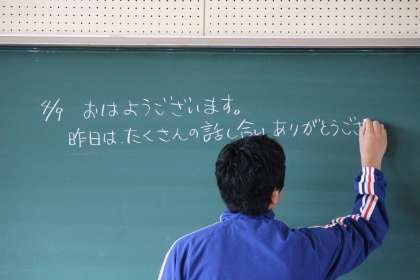 4/9 おはようございます。
昨日は、たくさんの話し合いありがとうござ